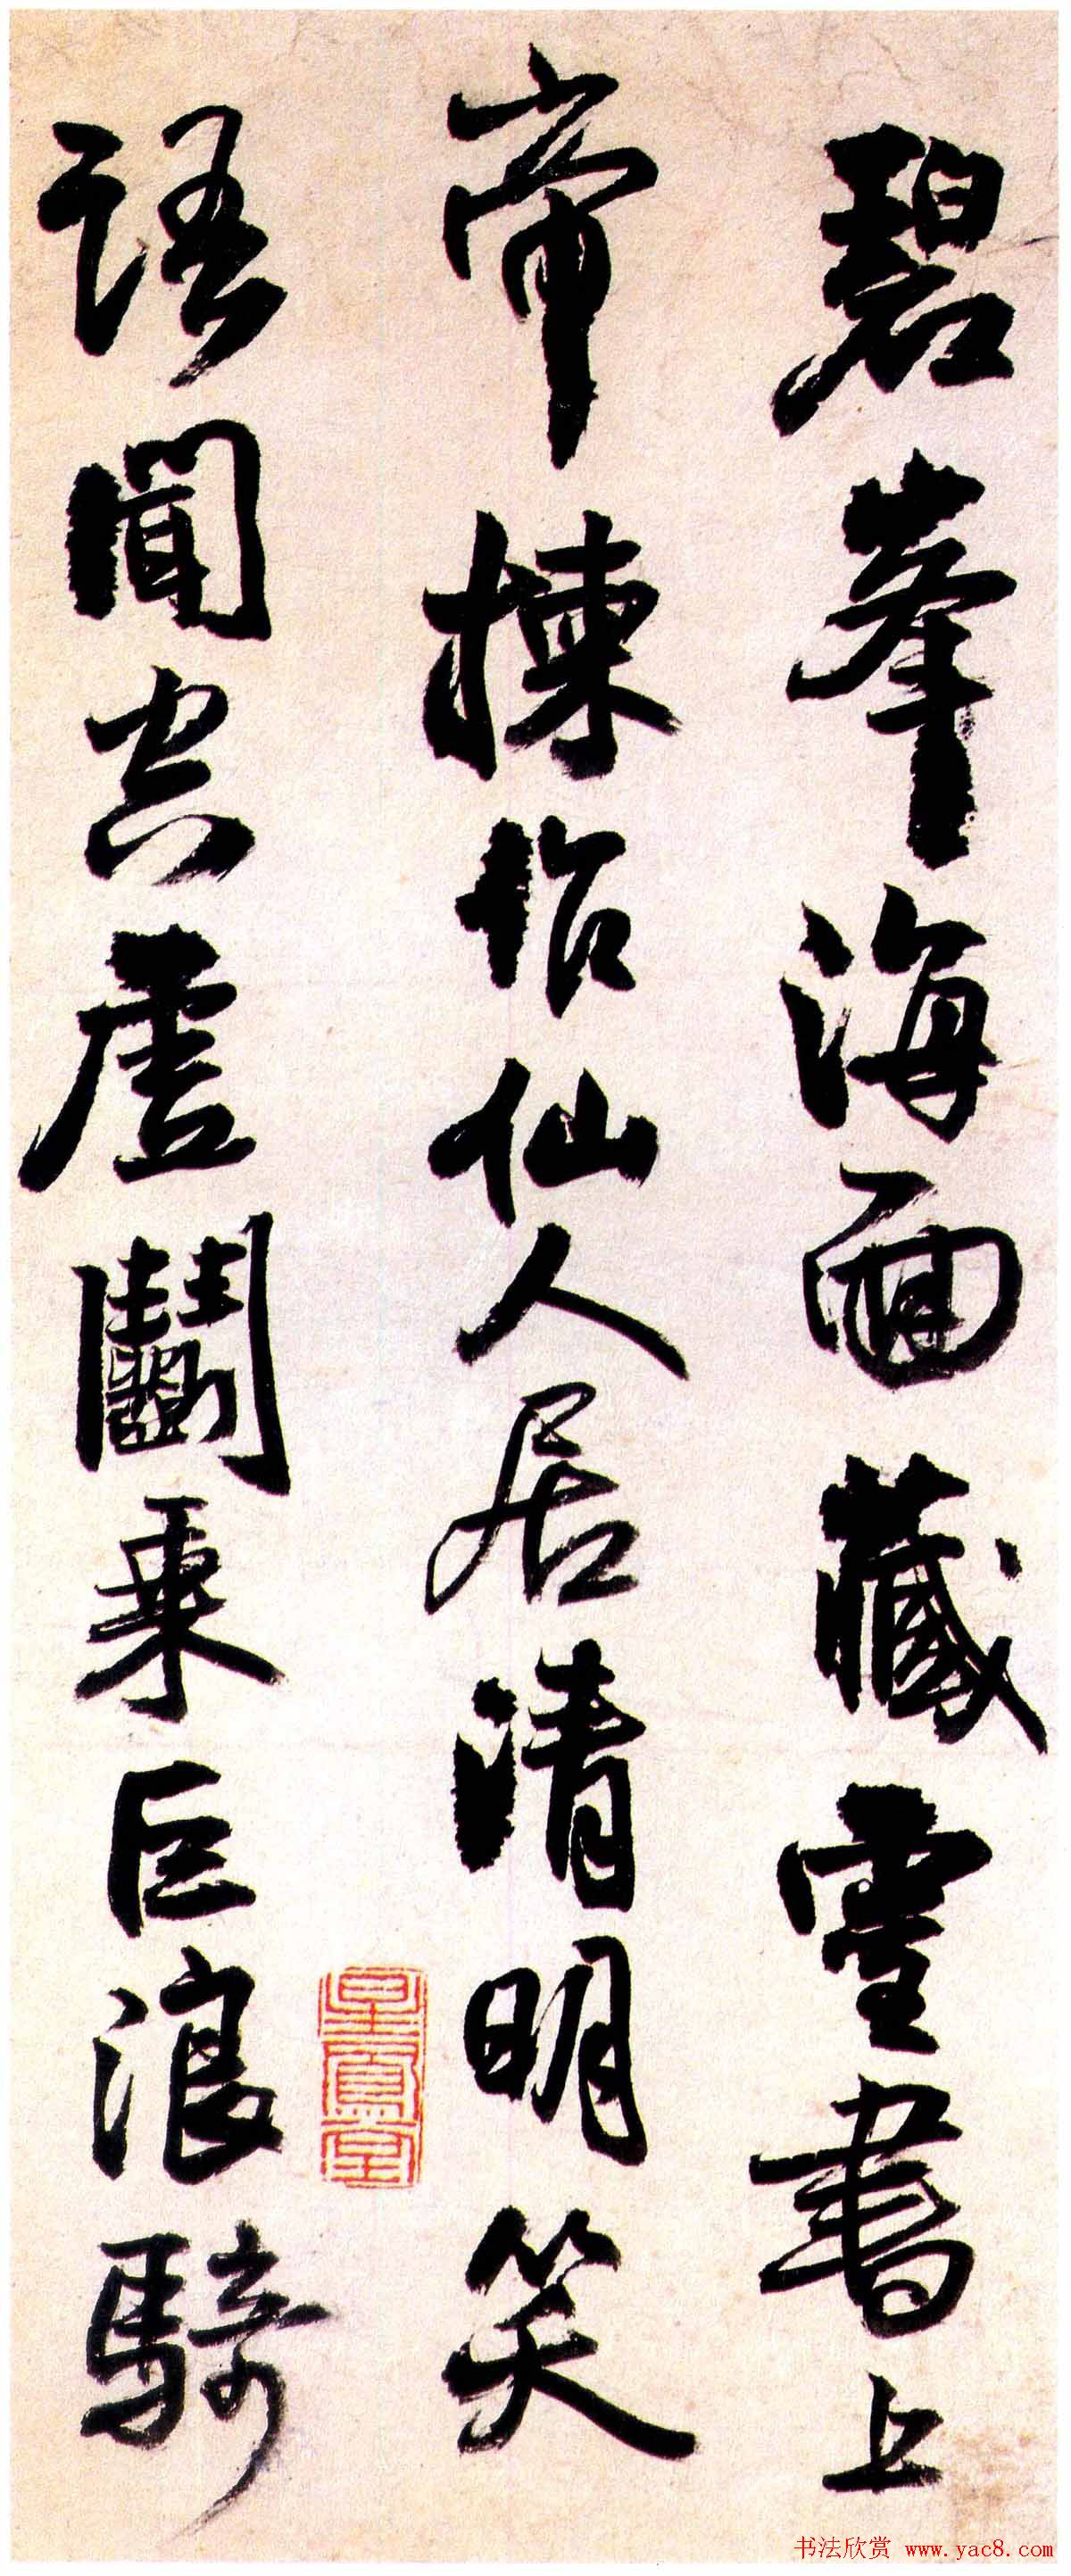 碧峯海面藏靈書上
帝揀作仙人居清明笑
語聞空虛鬭乘巨浪騎
书法欣赏 www.yac8.com